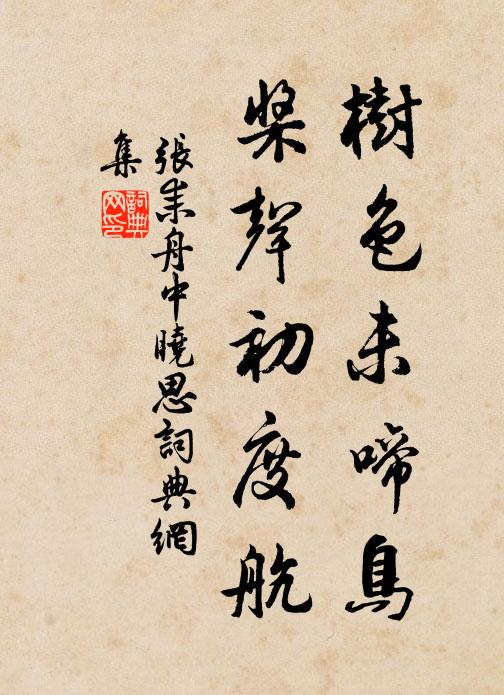 樹色未啼鳥
槳聲初度航
張耒舟中曉思詞典網
集
詞典
网印